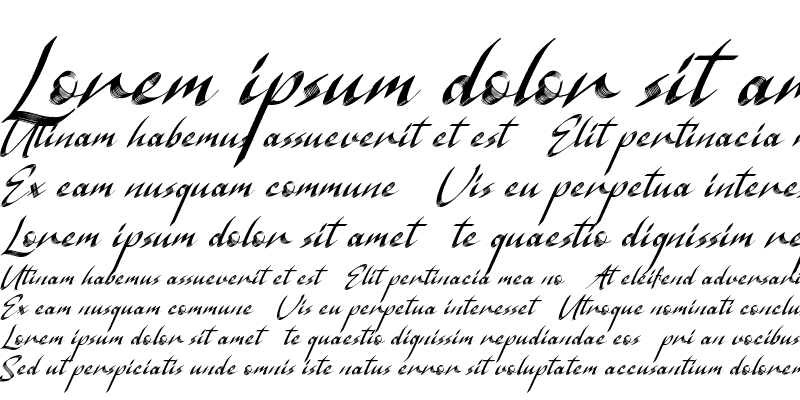 Lorem ipsum dolor sit am
Utinam habemus assueverit et est Elit pertinacia
Ex eam nusquam commune Vis eu perpetua interes
Lorem ipsum dolor sit amet te quaestio dignissim re
Utinam habemus assueverit et est Elit pertinacia mea no At eleifend adversari
Ex eam nusquam commune Vis eu perpetua interesset Utroque nominati conclu
Lorem ipsum dolor sit amet te quaestio dignissim repudiandae eos pri an vocibus
Sed ut perspiciatis unde omnis iste natus error sit voluptatem accusantium dolorem